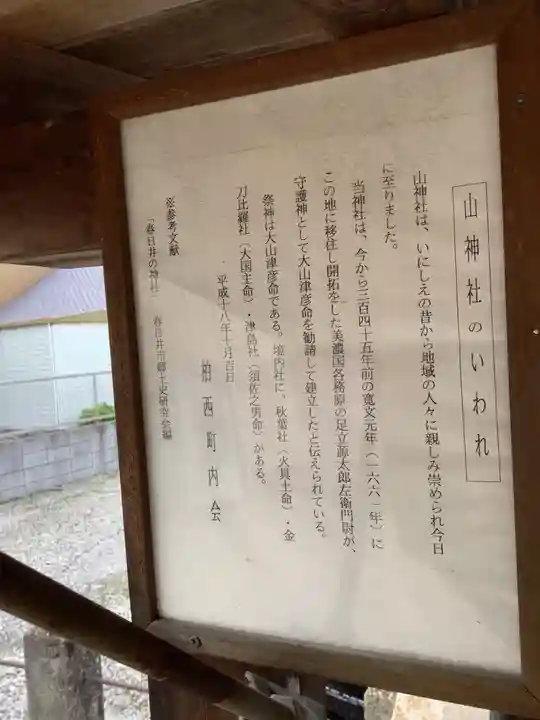 山神社のいわれ
山神社は、いにしえの昔から地域の人々に親しみ崇められ今日
に至りました。
当神社は、今から三百四十五年前の寛文元年（一六六一年）に
この地に移住し開拓をした美濃国各務原の足立源太郎左衛門尉が、
守護神として大山津彦命を勧請して建立したと伝えられている。
祭神は大山津彦命である。境内社に、秋葉社（火具主命）・金
刀比羅社（大国主命）・津島社（須佐之男命）がある。
平成十八年十月百日
柏西町内会
※参考文献
「春日井の神社」 春日井市郷土史研究会編